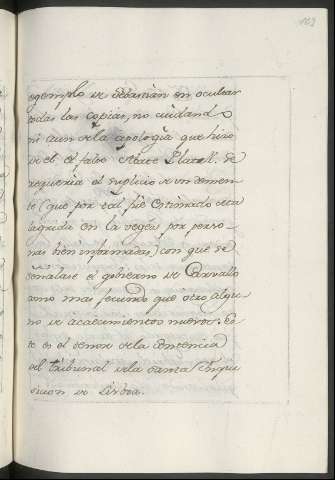 103
egemplo de Sebastian en ocultar
todas las copias, no cuidand
ni aun de la apologia que hizo
de el el falso Abate Platell. Se
requeria el suplicio de un demen-
te (que por tal fue estimado
en la vegés por perso-
nas bien informadas) con que se
señalase el gobierno de Carvallo
como mas fecundo que otro algu-
no de acaecimientos nuevos. Es-
te es el tenor de la Sentencia
del tribunal de la Santa Inqui-
sicion de Lisboa.